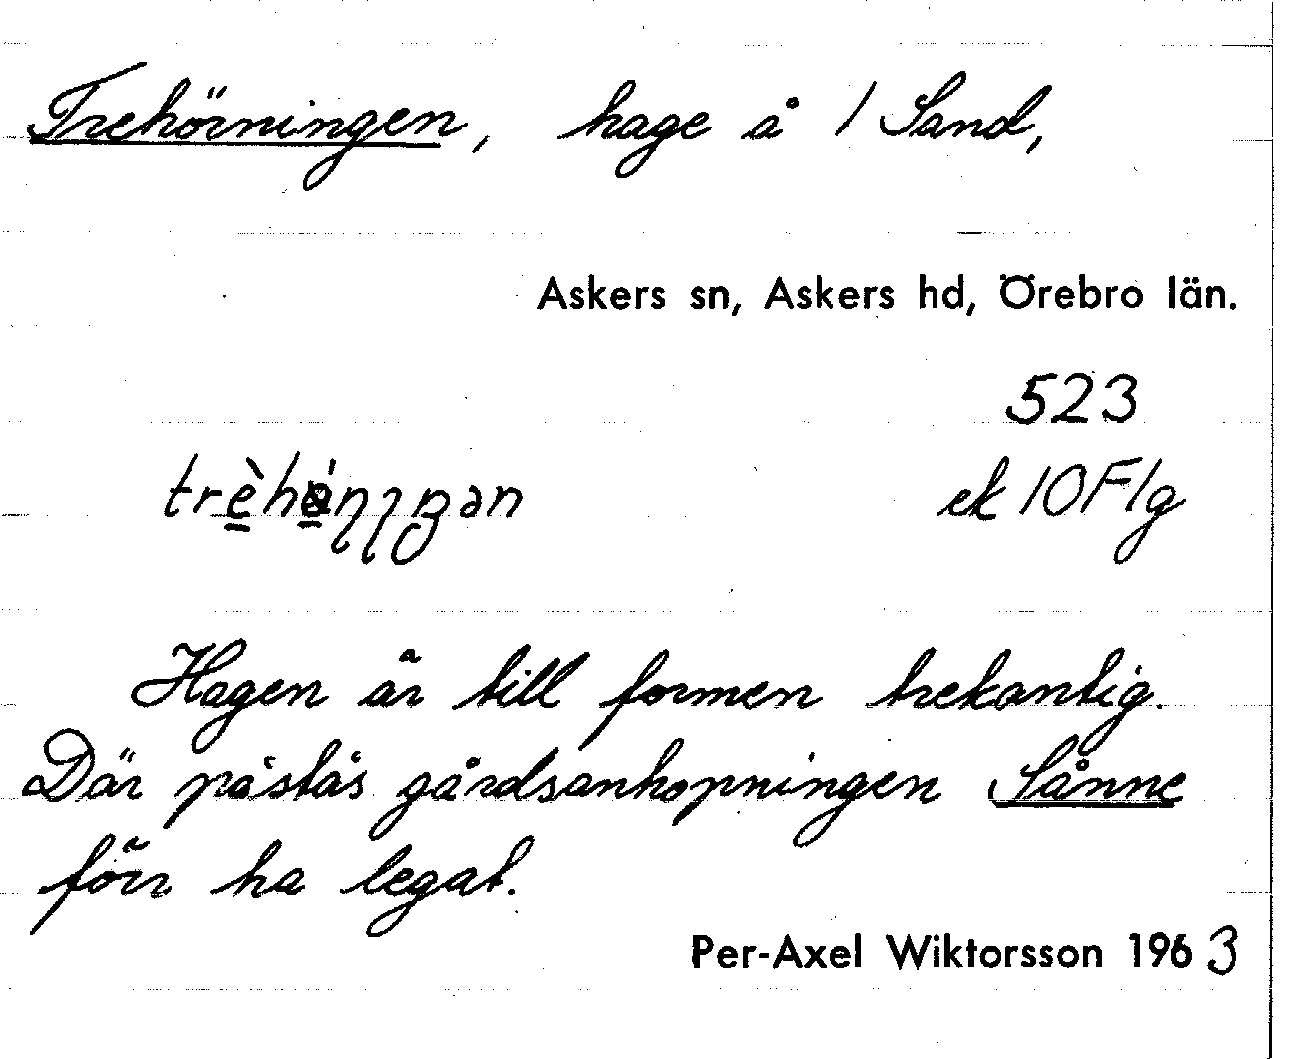 Trehörningen, hage å 1 Sand,
Askers sn, Askers hd, Örebro län.
523
ek 10F1g
Hagen är till formen trekantig.
Där påstås gårdsanhopningen Sånne
förr ha legat.
Per-Axel Wiktorsson 1963